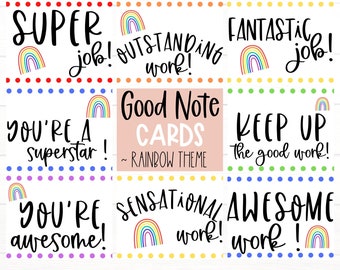 SUPER
job!
OUTSTANDING
work!
FANTASTIC
job!
YOU'RE A
superstar!
Good Note
CARDS
~ RAINBOW THEME
KEEP UP
the good work!
YOU'RE
awesome!
SENSATIONAL
work!
AWESOME
work!